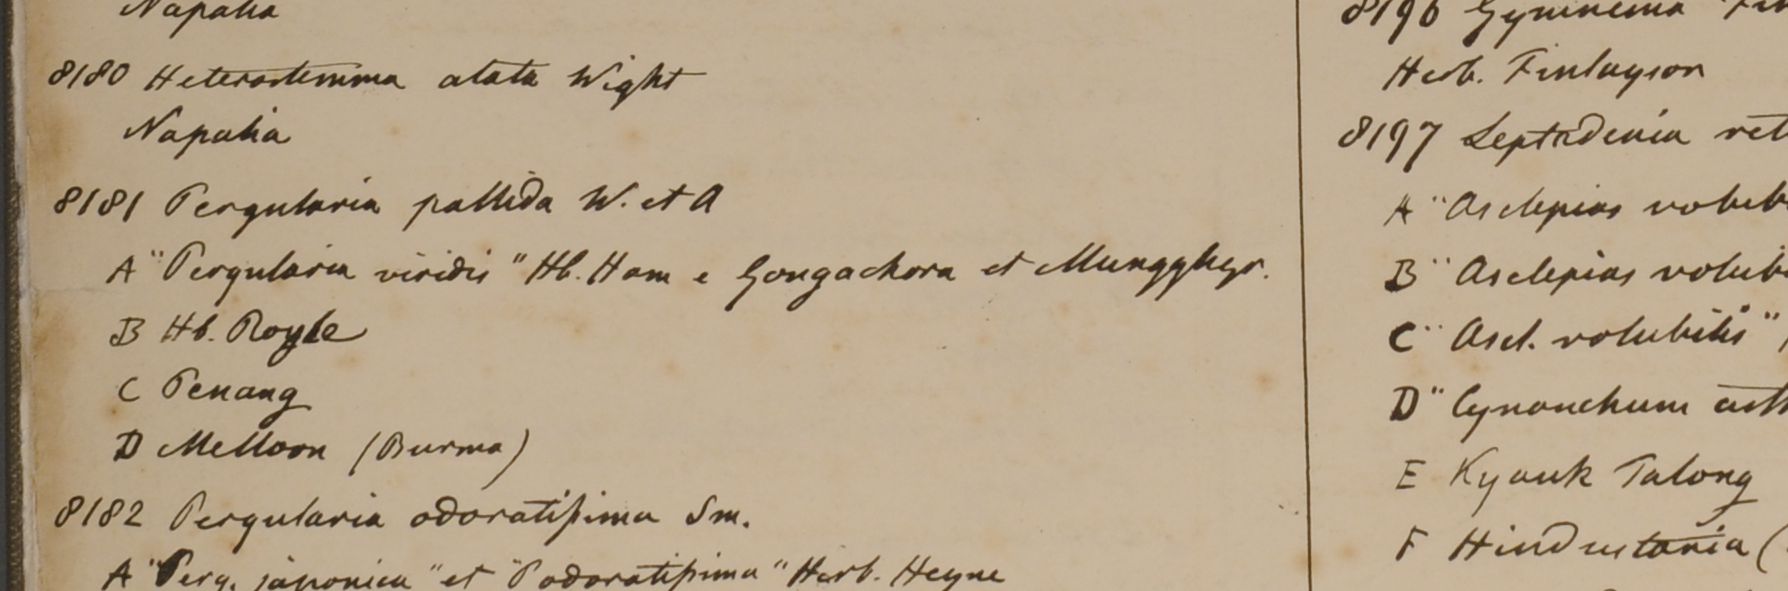 Napalia
8180 Heterostemma alata Wight
Napalia
8181 Pergularia pallida W. et A
A "Pergularia viridis" Hb. Ham e Gongachora et Mungghyr.
B Hb. Royle
C Penang
D Melloon (Burma)
8182 Pergularia odoratissima Sm.
A "Perg. japonica" et "P odoratissima" Herb. Heyne
8196 Gymnema
Herb. Finlayson
8197 Leptadenia ret
A "Asclepias volubi
B "Asclepias volubi
C "Ascl. volubilis"
D "Cynanchum
E Kyouk Talong
F Hindustania (